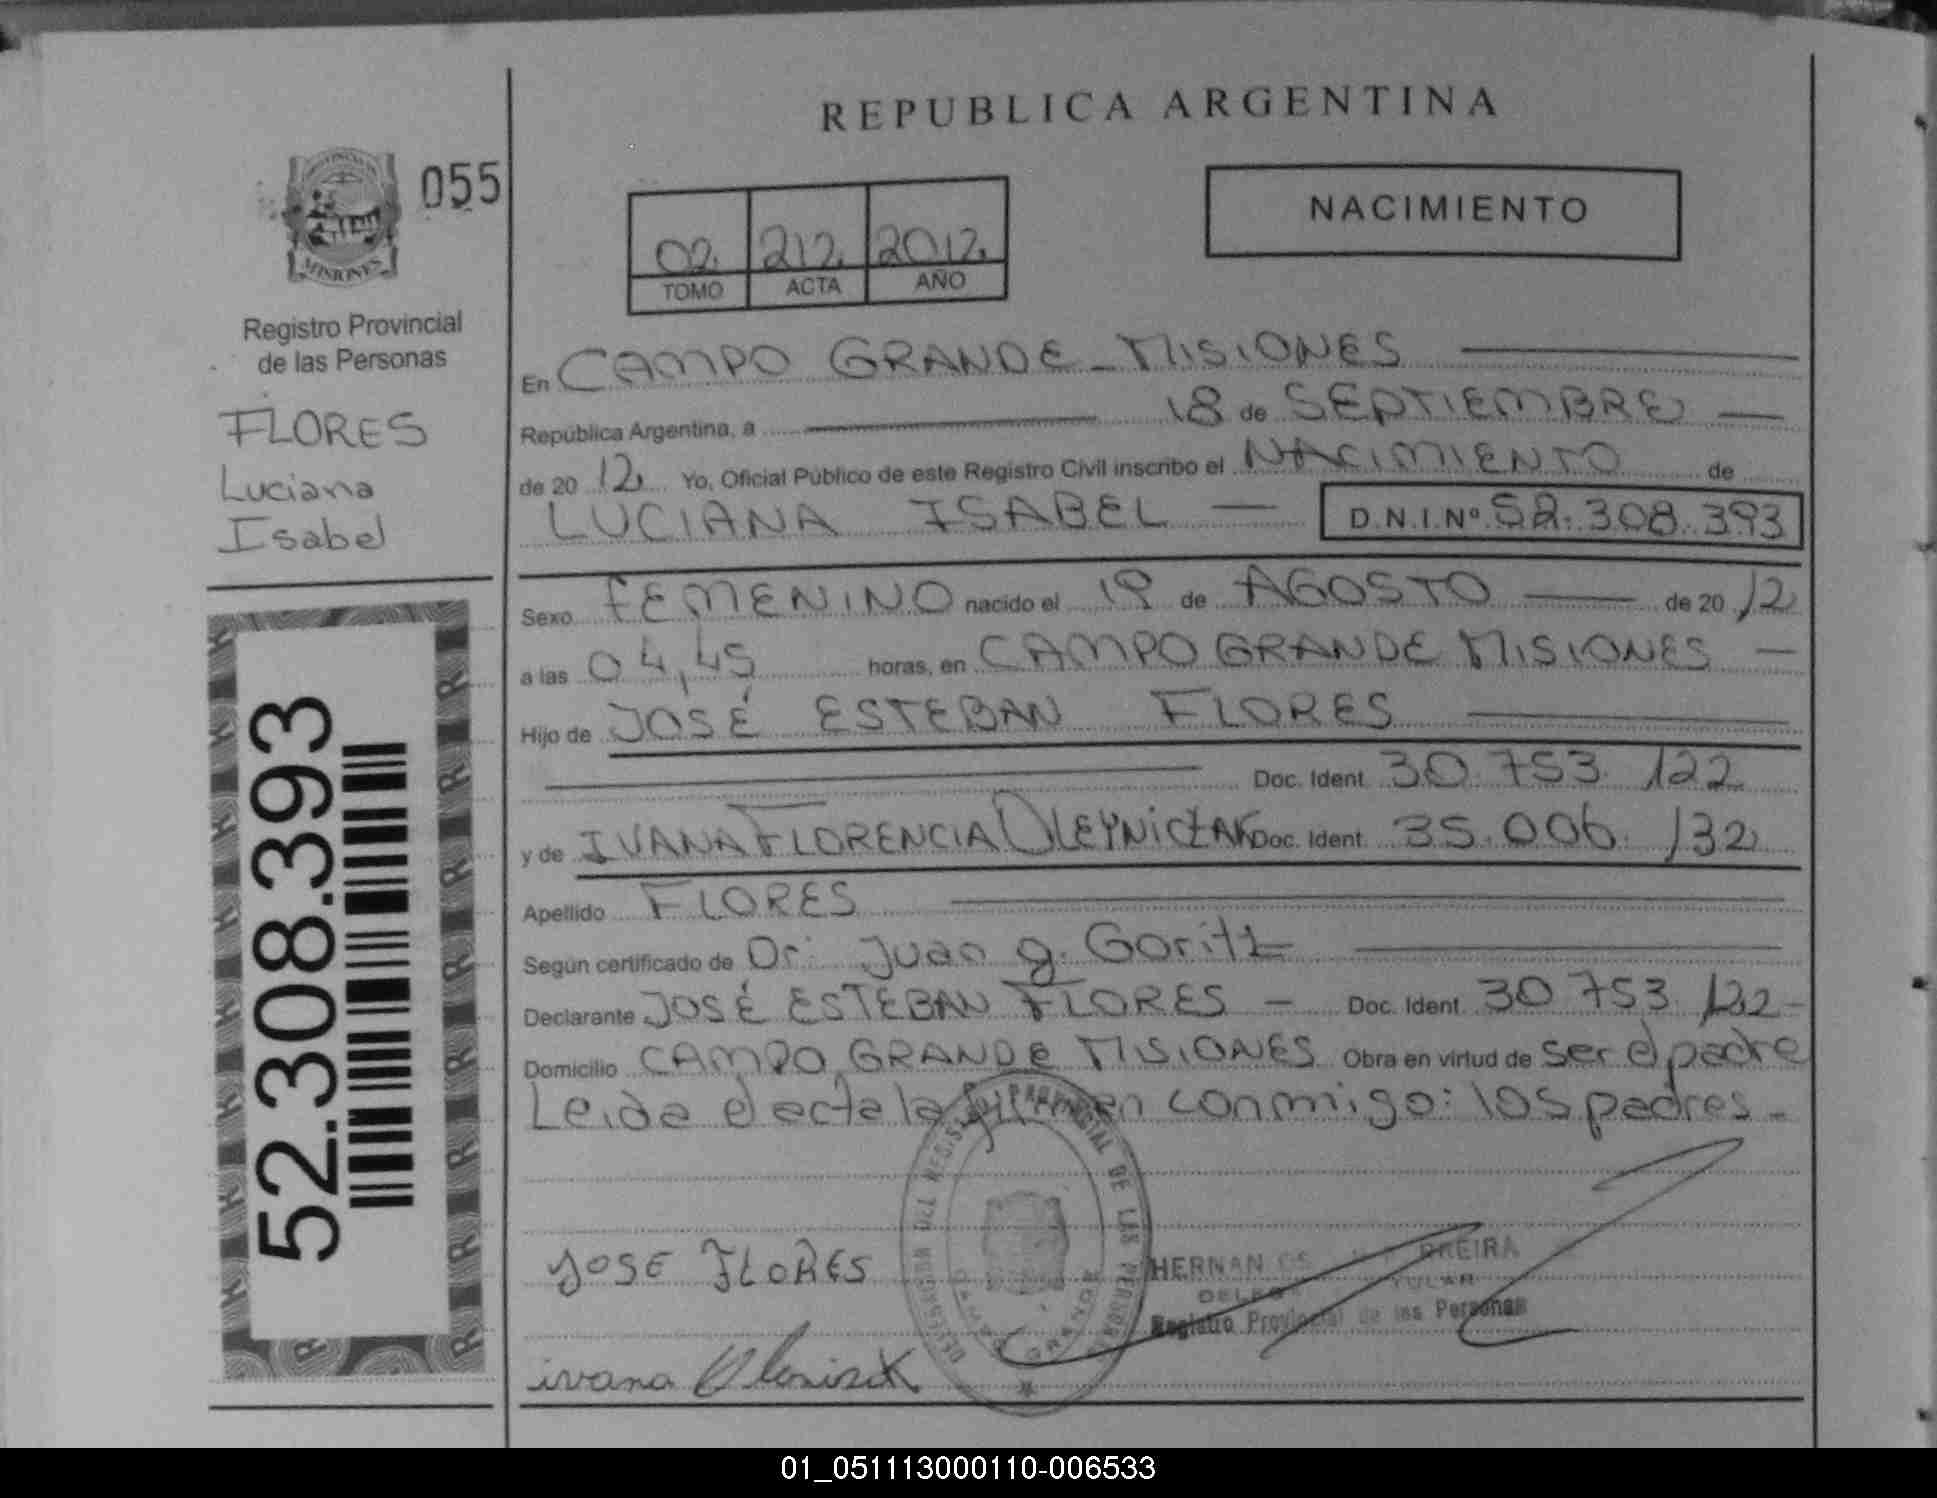 REPUBLICA ARGENTINA
PROVINCIA DE
MISIONES
055
Registro Provincial
de las Personas
FLORES
Luciana
Isabel
52.308.393
NACIMIENTO
02. 212. 2012.
TOMO ACTA AÑO
En CAMPO GRANDE - MISIONES
República Argentina, a 18 de SEPTIEMBRE
de 20 12 Yo, Oficial Público de este Registro Civil inscribo el NACIMIENTO de
LUCIANA ISABEL — D.N.I.Nº 52.308.393
Sexo FEMENINO nacido el 19 de AGOSTO de 20 12
a las 04,45 horas, en CAMPO GRANDE MISIONES —
Hijo de JOSÉ ESTEBAN FLORES
Doc. Ident. 30.753.122
y de IVANA FLORENCIA OLEYNICZAK Doc. Ident. 35.006.132
Apellido FLORES
Según certificado de Dr: Juan g. Goritz
Declarante JOSÉ ESTEBAN FLORES — Doc. Ident. 30 753 122-
Domicilio CAMPO GRANDE MISIONES Obra en virtud de ser el padre
Leida el acta la firman conmigo: los padres.-
REGISTRO PROVINCIAL DE LAS PERSONAS
CAMPO GRANDE
JOSE FLORES
HERNAN
Registro Provincial de las Personas
ivana
01_051113000110-006533